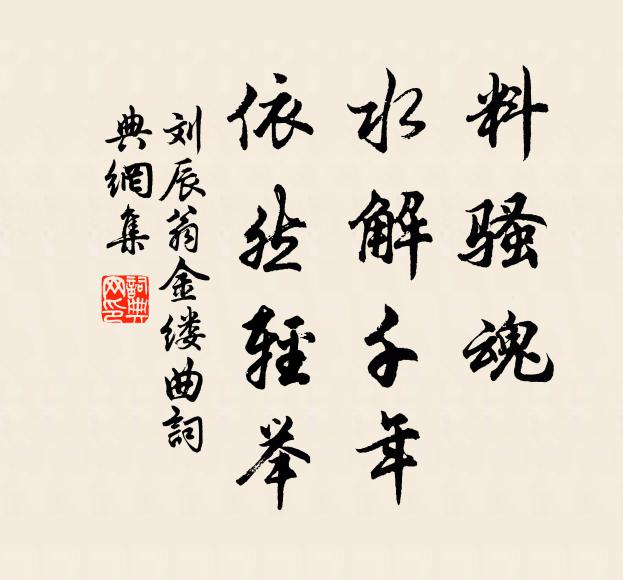 料骚魂
水解千年
依然轻举
刘辰翁金缕曲詞
典網集
詞典网印